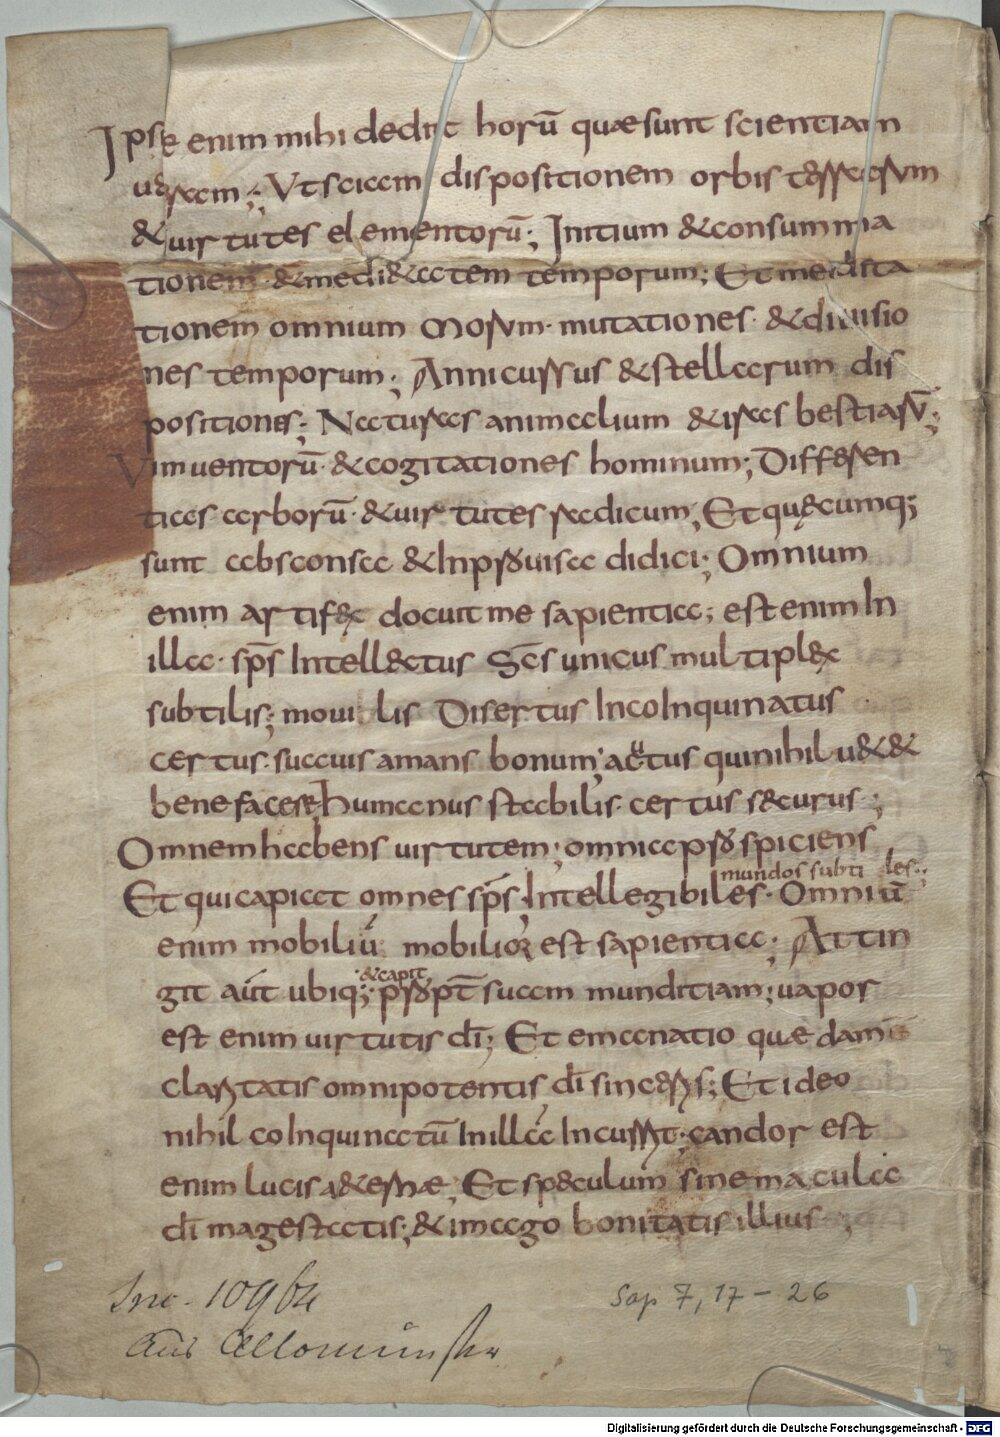 Ipse enim mihi dedit horū quae sunt scientiam
ueram; Ut sciam dispositionem orbis terrarum
& uirtutes elementorū; Initium & consumma
tionem & medi&atem temporum; Et medita
tionem omnium morum · mutationes · & diuisio
nes temporum; Anni cursus & stellarum dis
positiones; Naturas animalium & iras bestiarū;
Uim uentorū & cogitationes hominum; Differen
tias arborū · & uirtutes radicum; Et quęcumq;
sunt absconsa & Inprouisa didici; Omnium
enim artifex docuit me sapientia; est enim In
illa · sp̄s Intellectus Sc̄s unicus multiplex
subtilis; mouilis Disertus IncoInquinatus
certus · suauis amans bonum; actus qui nihil u&&
benefacere; humanus stabilis · certus securus;
Omnem habens uirtutem; omnia prospiciens
mundos subtiles;
Et qui capiat omnes sp̄s; Intellegibiles · Omniū
enim mobiliū mobilior est sapientia; Attin
& capit
git aūt ubiq; propt̄ suam munditiam; uapor
est enim uirtutis dī; Et emanatio quae dam ē
claritatis omnipotentis dī sinceris; Et ideo
nihil coInquinatū In illa Incurrit; candor est
enim lucis aeternae; Et speculum sine macula
dī magestatis; & imago bonitatis illius;
Inc. 10964
aus Altomünster
Sap 7, 17 - 26
Digitalisierung gefördert durch die Deutsche Forschungsgemeinschaft - DFG